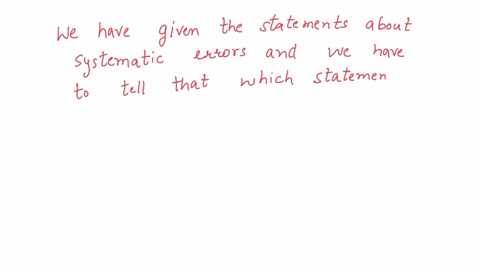 We have given the statements about
systematic errors and we have
to tell that which statemen